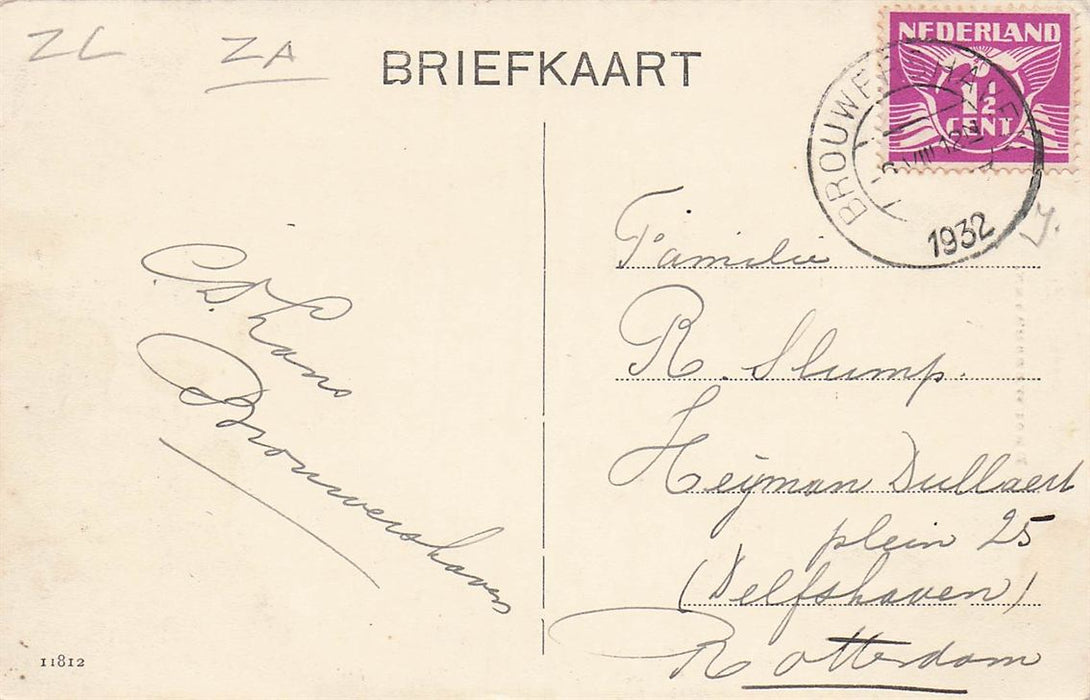 ZL ZA
BRIEFKAART
NEDERLAND
1½
CENT
BROUWERSHAVEN
VIII 12
1932
C.D. Hans
Brouwershaven
Familie
R. Slump.
Heijman Dullaert
plein 25
(Delfshaven)
Rotterdam
11812